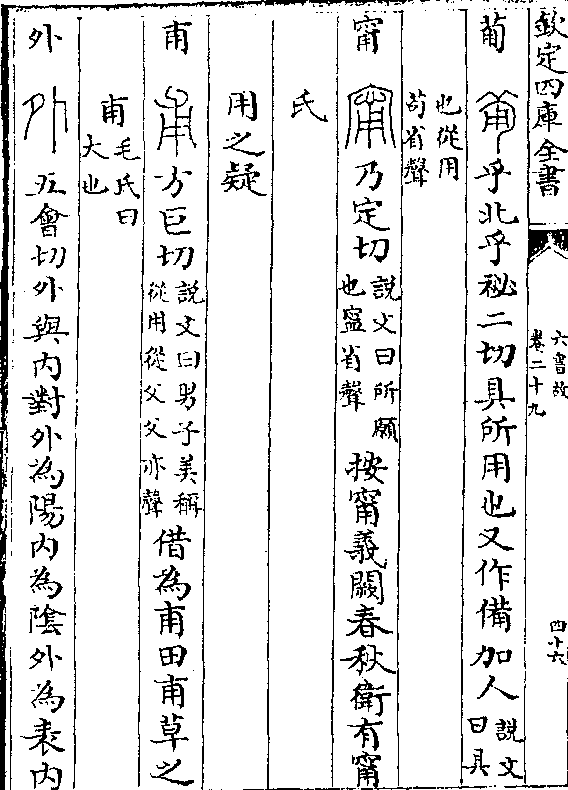 欽定四庫全書
六書故
卷二十九
四十六
葡 乎北乎祕二切具所用也又作備加人說文曰具
也從用茍省聲
甯 乃定切說文曰所願也寍省聲按甯義闕春秋衛有甯
氏
用之疑
甫 方巨切說文曰男子美稱從用從父父亦聲借為甫田甫草之
甫毛氏曰大也
外 五會切外與內對外為陽內為陰外為表內